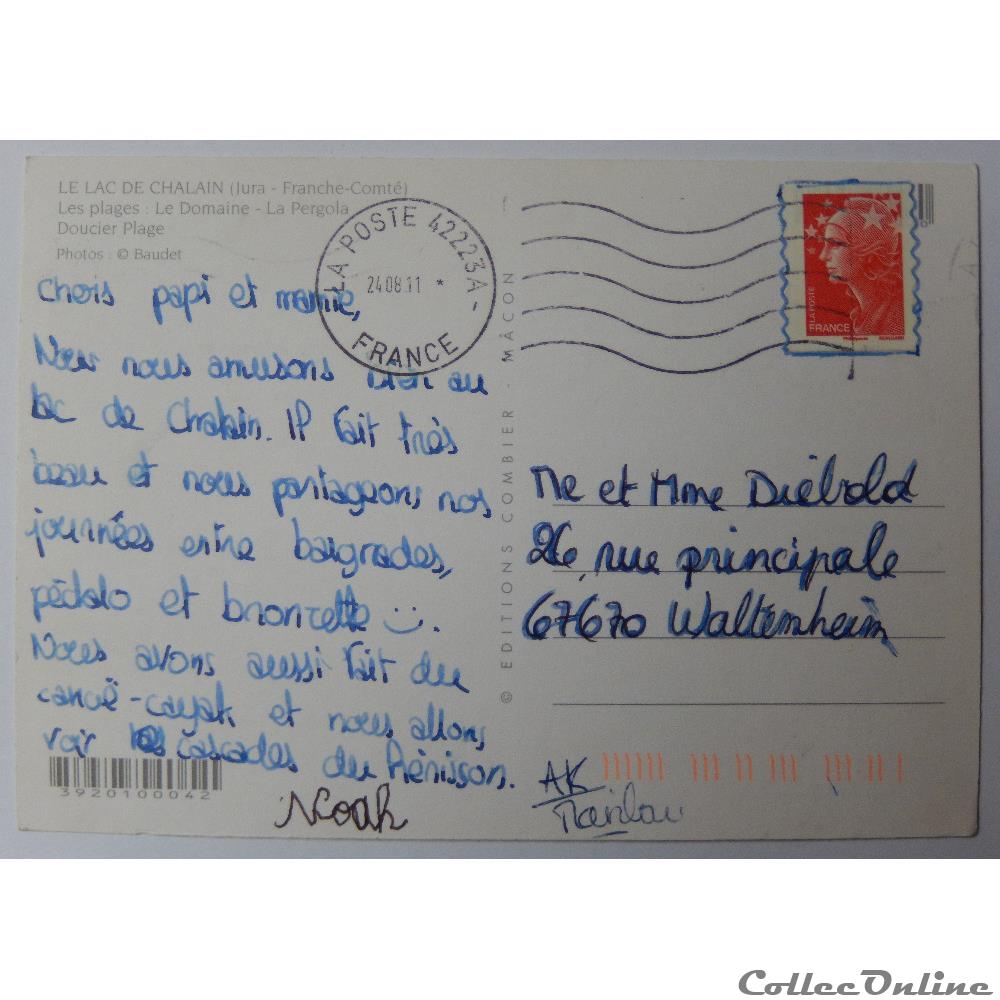 LE LAC DE CHALAIN (Jura - Franche-Comté)
Les plages : Le Domaine - La Pergola
Doucier Plage
Photos : © Baudet
LA POSTE 42223A -
24.08.11 *
FRANCE
LA POSTE
FRANCE
Chers papi et mamie,
Nous nous amusons bien au
lac de Chalain. Il fait très
beau et nous partageons nos
journées entre baignades,
pédalo et bronzette :).
Nous avons aussi fait du
canoë-cayak et nous allons
voir les cascades du Hérisson.
Noah
3920100042
© EDITIONS COMBIER - MÂCON
Mr et Mme Diebold
26, rue principale
67670 Waltenheim
AK
CollecOnline